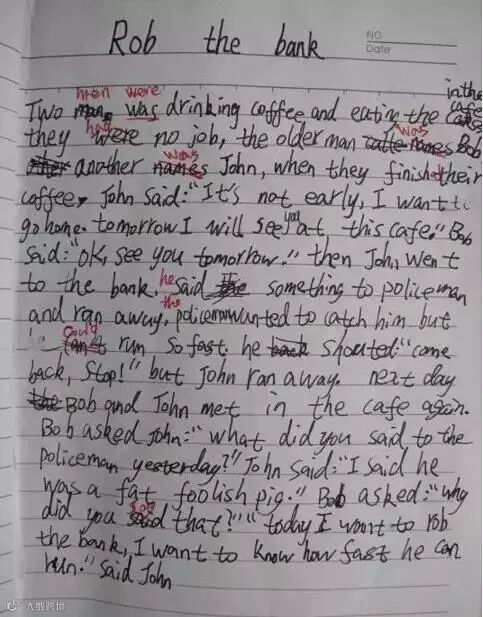 Rob the bank
NO
Date
men were in the
Two man was drinking coffee and eating the cafe
had was
they were no job, the older man names Bob
was
another names John, when they finished their
coffee, John said: "It's not early, I want to
you
go home. tomorrow I will see at this cafe." Bob
said: "ok, see you tomorrow." then John went
he
to the bank. said something to policeman
the
and ran away, policeman wanted to catch him but
could
run so fast. he back shouted: "come
back, stop!" but John ran away. next day
the Bob and John met in the cafe again.
Bob asked John: "what did you said to the
policeman yesterday?" John said: "I said he
was a fat foolish pig." Bob asked: "why
say
did you said that?" "today I want to rob
the bank, I want to know how fast he can
run." said John
人散跨境